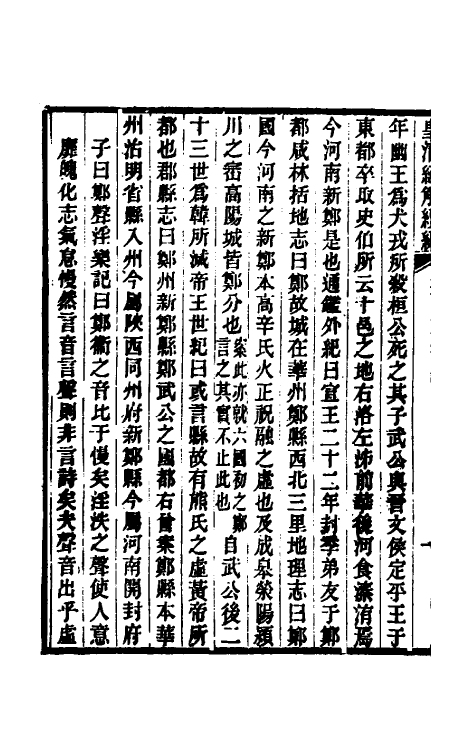 皇清經解續編
年幽王爲犬戎所殺桓公死之其子武公與晉文侯定平王于
東都卒取史伯所云十邑之地右洛左泲前華後河食溱洧焉
今河南新鄭是也通鑑外紀曰宣王二十二年封季弟友于鄭
都咸林括地志曰鄭故城在華州鄭縣西北三里地理志曰鄭
國今河南之新鄭本高辛氏火正祝融之虛也及成皋滎陽潁
川之崈高陽城皆鄭分也案此亦就六國初之鄭言之其實不止此也自武公後二
十三世爲韓所滅帝王世紀曰或言縣故有熊氏之虛黃帝所
都也郡縣志曰鄭州新鄭縣鄭武公之國都右舊案鄭縣本華
州治明省縣入州今屬陝西同州府新鄭縣今屬河南開封府
子曰鄭聲淫樂記曰鄭衞之音比于慢矣淫泆之聲使人意
靡魄化志氣怠慢然言音言聲則非言詩矣夫聲音出乎虛